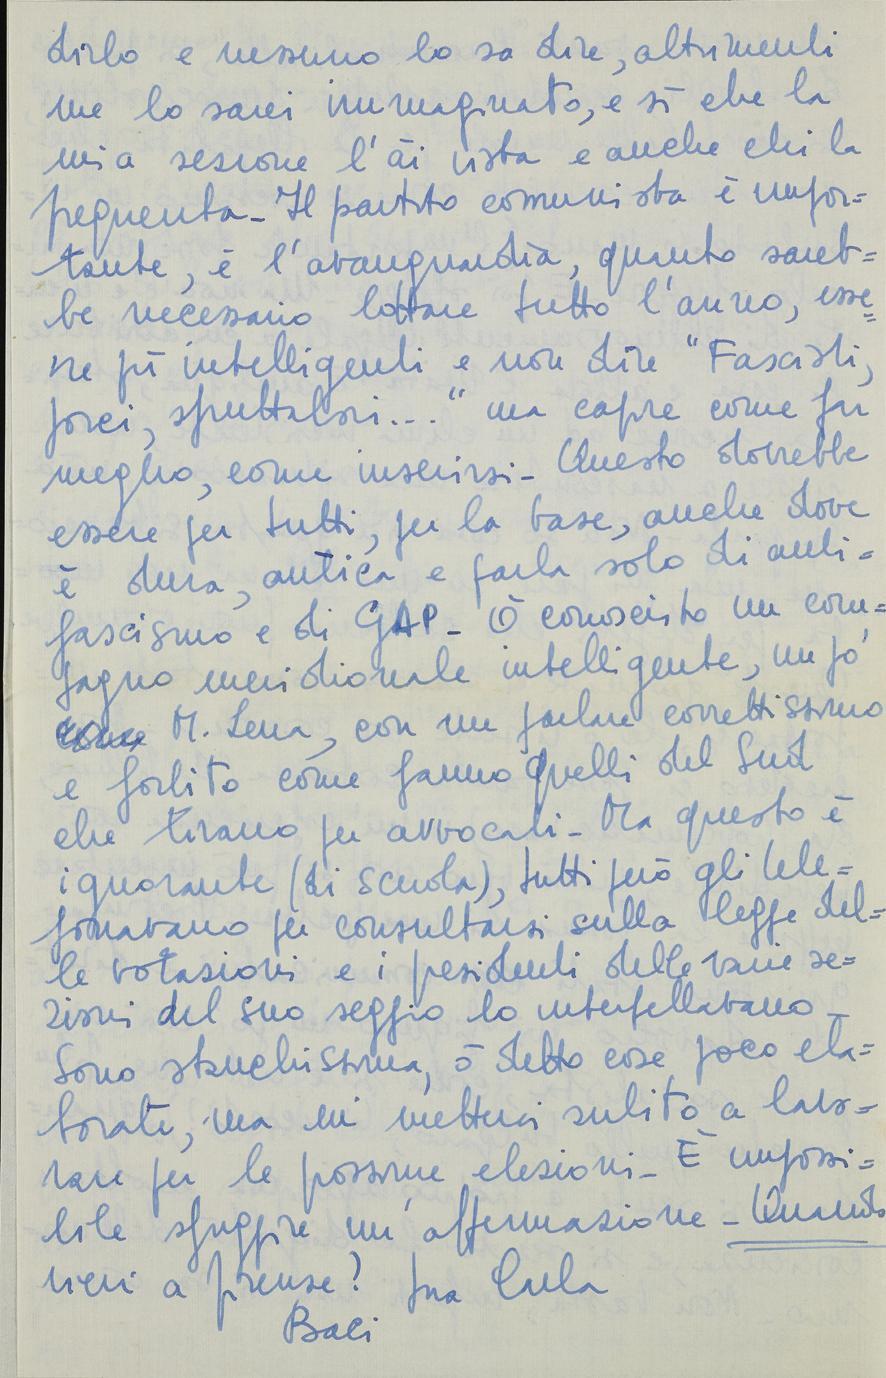 dirlo e nessuno lo sa dire, altrimenti
me lo sarei immaginato, e sì che la
mia sezione l'ài vista e anche chi la
frequenta - Il partito comunista è impor=
tante, è l'avanguardia, quanto sareb=
be necessario lottare tutto l'anno, esse=
re più intelligenti e non dire "Fascisti,
porci, sfruttatori..." ma capire come far
meglio, come inserirsi - Questo dovrebbe
essere per tutti, per la base, anche dove
è dura, antica e parla solo di anti=
fascismo e di GAP - Ò conosciuto un com=
pagno meridionale intelligente, un pò
come M. Lena, con un parlare correttissimo
e forbito come fanno quelli del Sud
che tirano per avvocati - Ma questo è
ignorante (di scuola), tutti però gli tele=
fonavano per consultarsi sulla legge del=
le votazioni e i presidenti delle varie se=
zioni del suo seggio lo interpellavano -
Sono stanchissima, ò detto cose poco ela=
borate, ma mi metterei subito a lavo=
rare per le prossime elezioni - È impossi=
bile sfuggire un'affermazione - Quando
vieni a Firenze? tua Carla
Baci